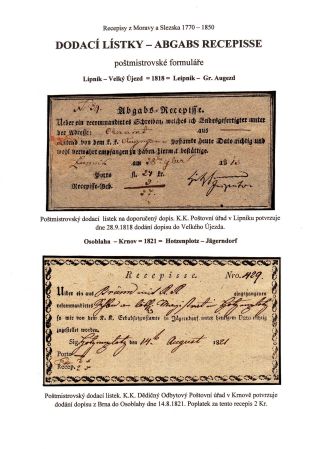 Recepisy z Moravy a Slezska 1770 – 1850
DODACÍ LÍSTKY – ABGABS RECEPISSE
poštmistrovské formuláře
Lipník – Velký Újezd = 1818 = Leipnik – Gr. Augezd
Abgabs-Recepisse.
Ueber ein recommandirtes Schreiben, welches ich Endesgefertigter unter
der Adresse: aus
postamte heute Dato richtig und
wohl verwahrt empfangen zu haben hiermit bestättige.
Porto fl. 24 kr
Recepisse-Geb. 3
27
Poštmistrovský dodací lístek na doporučený dopis. K.K. Poštovní úřad v Lipníku potvrzuje
dne 28.9.1818 dodání dopisu do Velkého Újezda.
Osoblaha – Krnov = 1821 = Hotzenplotz – Jägerndorf
Recepisse. Nro. 429.
Ueber ein aus eingegangenes
recommandirtes
so mir von dem K. K. Erbabsatzpostamte in Jägerndorf unter heutigem Dato richtig
zugestellet worden.
Sig. Hotzenplotz den 14 August 1821
Porto
Recep.
Poštmistrovský dodací lístek. K.K. Dědičný Odbytový Poštovní úřad v Krnově potvrzuje
dodání dopisu z Brna do Osoblahy dne 14.8.1821. Poplatek za tento recepis 2 Kr.